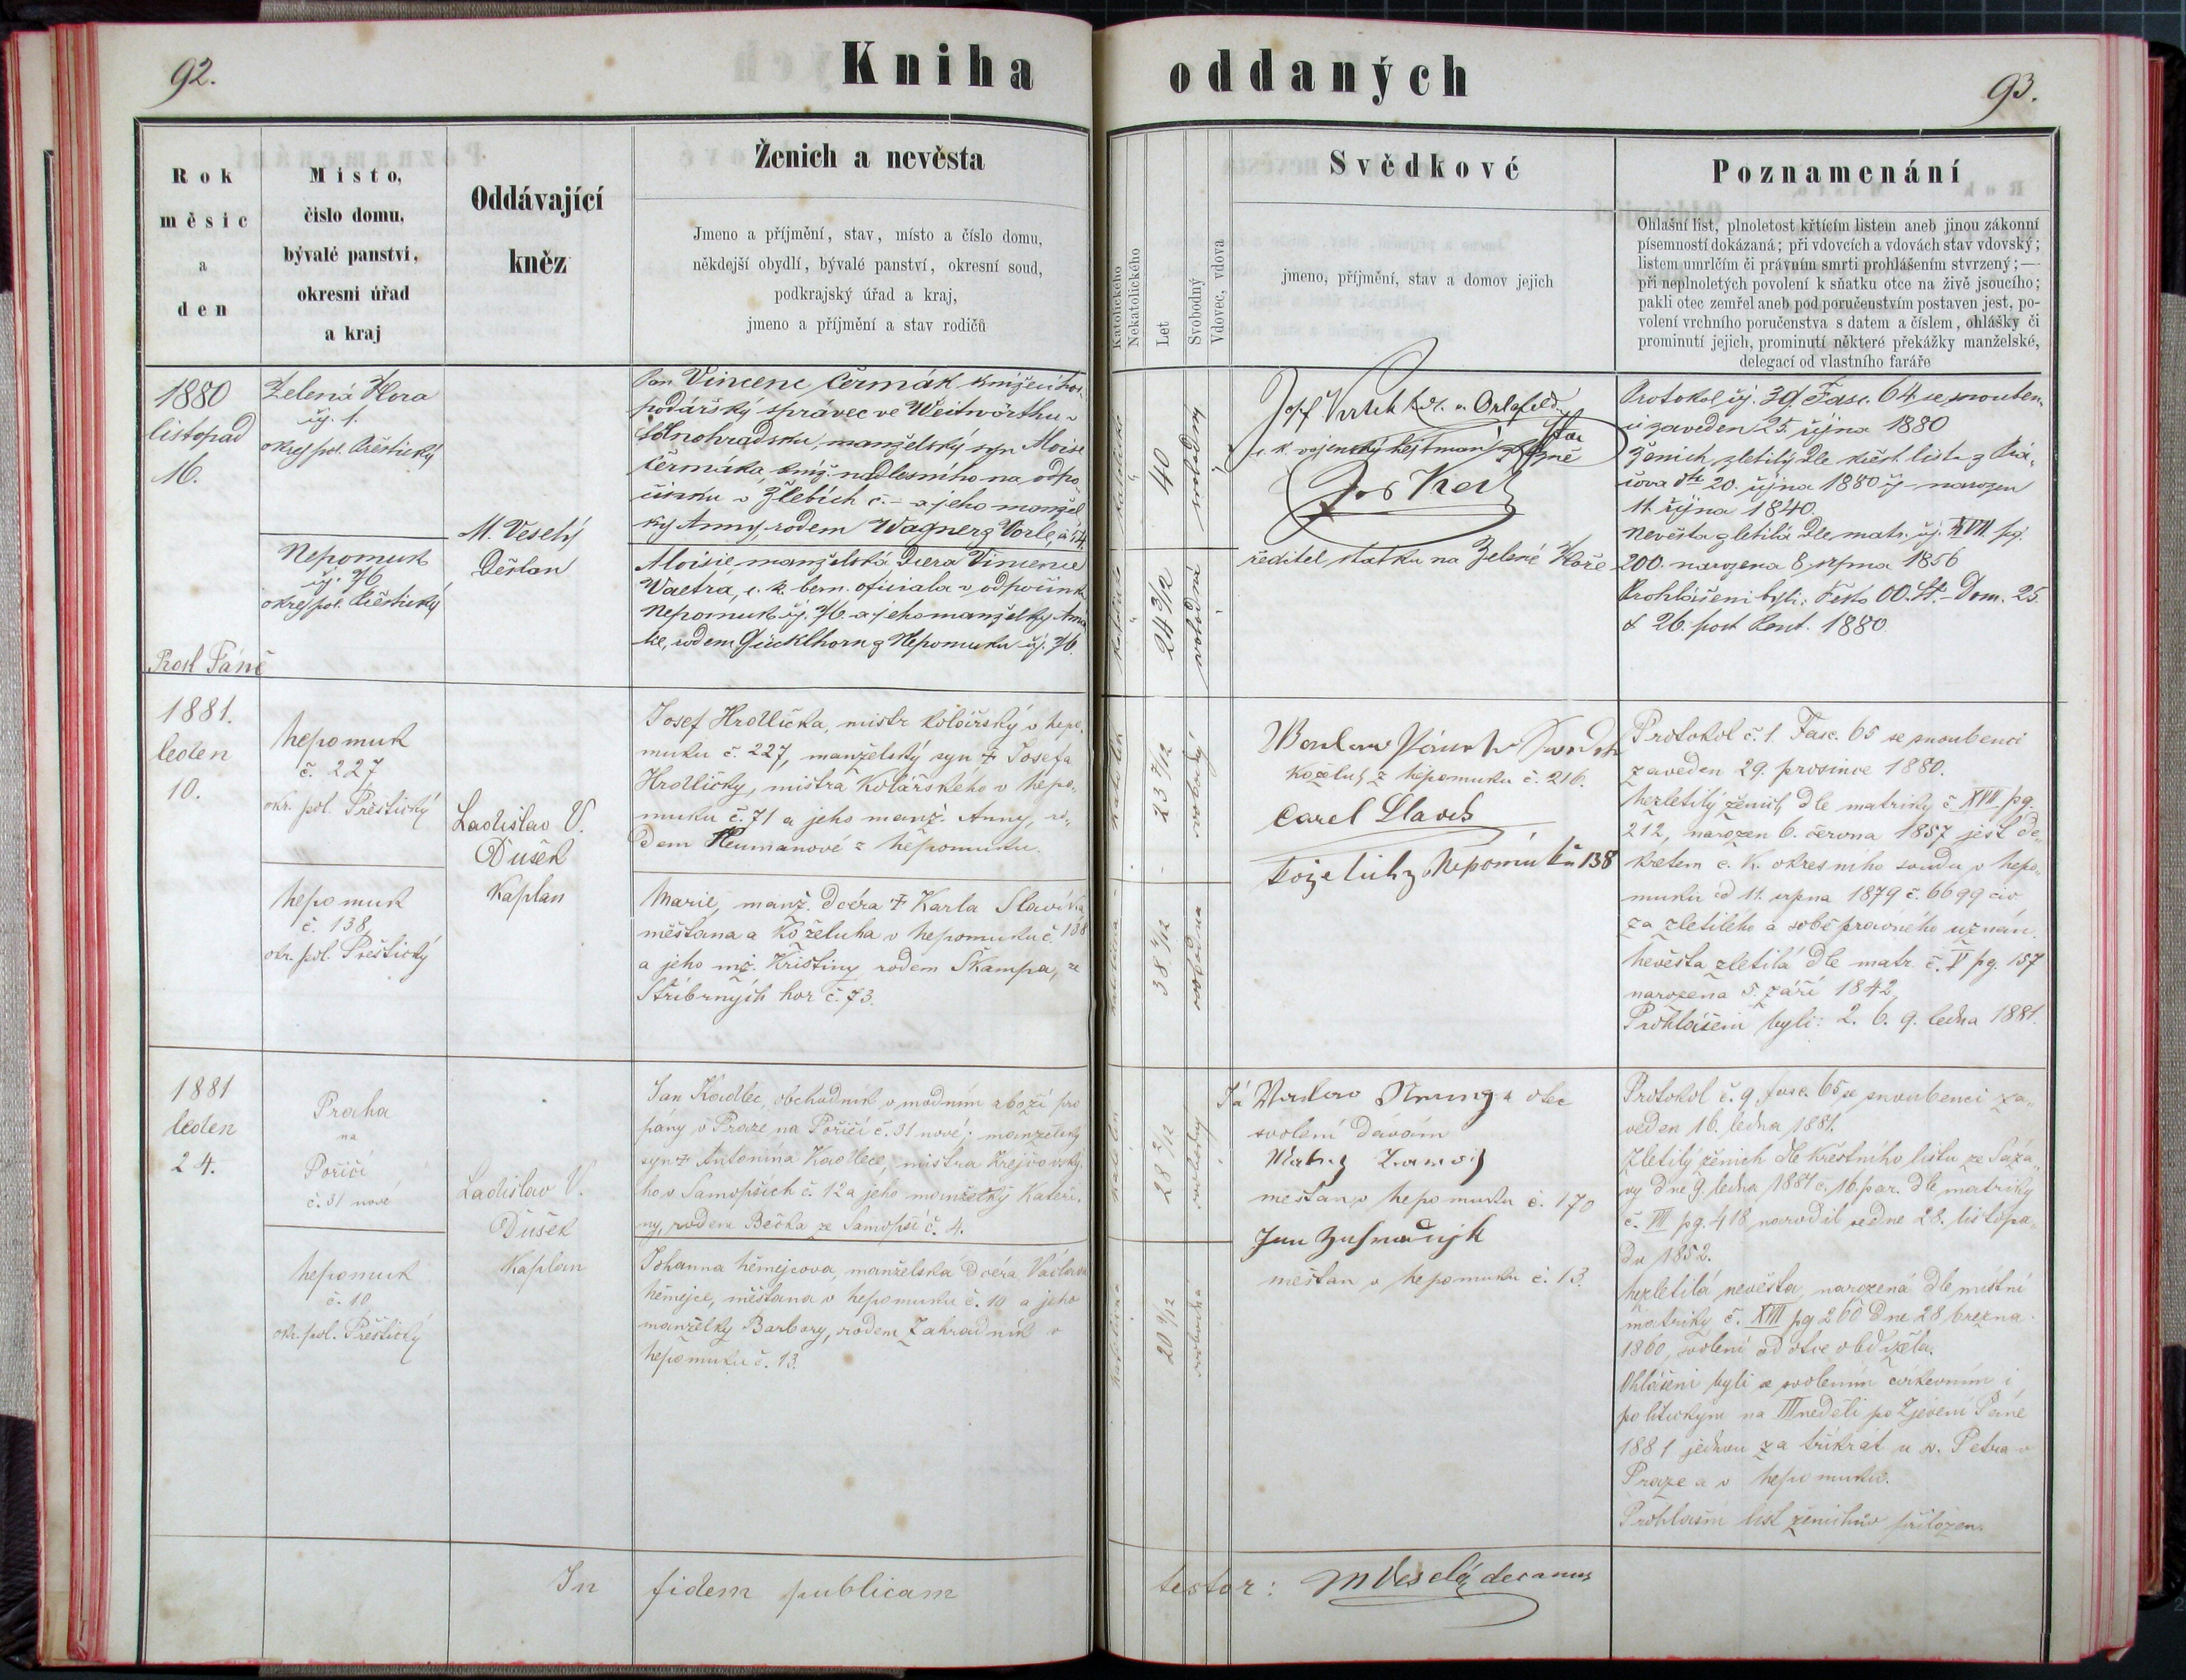 92.
Kniha oddaných
93.
Rok
měsíc
a
den
Místo,
číslo domu,
bývalé panství,
okresní úřad
a kraj
Oddávající
kněz
Ženich a nevěsta
Jmeno a příjmění, stav, místo a číslo domu,
někdejší obydlí, bývalé panství, okresní soud,
podkrajský úřad a kraj,
jmeno a příjmění a stav rodičů
Katolického
Nekatolického
Let
Svobodný
Vdovec, vdova
Svědkové
jmeno, příjmění, stav a domov jejich
Poznamenání
Ohlašní list, plnoletost křtícím listem aneb jinou zákonní
písemností dokázaná; při vdovcích a vdovách stav vdovský;
listem umrlčím či právním smrti prohlášením stvrzený;—
při neplnoletých povolení k sňatku otce na živě jsoucího;
pakli otec zemřel aneb pod poručenstvím postaven jest, po-
volení vrchního poručenstva s datem a číslem, ohlášky či
prominutí jejich, prominutí některé překážky manželské,
delegací od vlastního faráře
1880
listopad
16.
Zelená Hora
čj. 1.
okres pol. Přeštický
Nepomuk
čj. 76
okres pol. Přeštický
M. Veselý
Děkan
Pan Vincenc Čermák knížecí hos-
podářský správce ve Weitwörthu v
Solnohradsku, manželský syn Aloise
Čermáka, kníž. nadlesního na odpo-
činku v Žlebích č. – a jeho manžel
ky Anny, rodem Wagner z Vorle, č. 54.
Aloisie manželská dcera Vincence
Waetra, c. k. bern. oficiala v odpočink
Nepomuk čj. 76. a jeho manželky
rodem z Nepomuku čj. 76.
40
svobodný
24 3/12
svobodná
c. k. vojenský hejtman
ředitel statku na Zelené Hoře
Protokol čj. 39 Fasc. 64 se snouben.
ci zaveden 25. října 1880
Ženich zletilý dle křest. listu z
20. října 1880 čj – narozen
11. října 1840.
Nevěsta zletilá dle matr. čj. XVII pg.
200. narozena 8 srpna 1856
Prohlášeni byli: Festo OO. SS. – Dom. 25.
& 26. post Pent. 1880.
1881.
leden
10.
Nepomuk
č. 227
okr. pol. Přeštický
Nepomuk
č. 138
okr. pol. Přeštický
Ladislav V.
Dušek
Kaplan
Josef Hrdlička, mistr kolářský v Nepo-
muku č. 227, manželský syn † Josefa
Hrdličky, mistra kolářského v Nepo-
muku č. 71 a jeho manž. Anny, ro-
dem Neumanové z Nepomuku.
Marie, manž. dcéra † Karla Slavíka
měšťana a koželuha v Nepomuku č. 138
a jeho mž. Kristiny rodem Škampa, ze
Stříbrných hor č. 73.
23 7/12
svobodný
38 4/12
svobodná
koželuh z Nepomuku č. 216.
Carel Slavik
koželuh z Nepomuku 138
Protokol č. 1. Fasc. 65 se snoubenci
zaveden 29. prosince 1880.
Nezletilý ženich dle matriky č. XVII pg.
212, narozen 6. června 1857 jest de-
kretem c. k. okresního soudu v Nepo-
muku od 11. srpna 1879 č. 6699 civ
za zletilého a sobě právného uznán.
Nevěsta zletilá dle matr. č. V pg. 157
narozena 5. září 1842
Prohlášeni byli: 2. 6. 9. ledna 1881.
1881
leden
24.
Praha
na
Poříčí
č. 31 nové
Nepomuk
č. 10
okr. pol. Přeštický
Ladislav V.
Dušek
Kaplan
Jan Kadlec, obchodník v modním zboží pro
pány v Praze na Poříčí č. 31 nové; manželský
syn † Antonína Kadlece, mistra krejčovský-
ho v Samopších č. 12 a jeho manželky Kateři-
ny, rodem Bečka ze Samopší č. 4.
Johanna Němejcova, manželská dcéra Václava
Němejce, měšťana v Nepomuku č. 10 a jeho
manželky Barbory, rodem Zahradník v
Nepomuku č. 13.
28 2/12
svobodný
20 9/12
svobodná
Já otec
svolení dávám
měšťan v Nepomuku č. 170
Jan
měšťan v Nepomuku č. 13.
Protokol č. 9, fasc. 65 se snoubenci za-
veden 16. ledna 1881.
Zletilý ženich dle křestního listu ze Sáza-
vy dne 9. ledna 1881 č. 16. par. dle matriky
č. III pg. 418 narodil se dne 28. listopa-
du 1852.
Nezletilá nevěsta, narozená dle místní
matriky č. XVII pg 260 dne 28 března
1860, svolení od otce obdržela.
Ohlášeni byli se svolením církevním i
politickým na III neděli po Zjevení Páně
1881 jednou za třikrát u sv. Petra v
Praze a v Nepomuku.
Prohlašní list ženichův přiložen.
In fidem publicam testor: M Veselý decanus